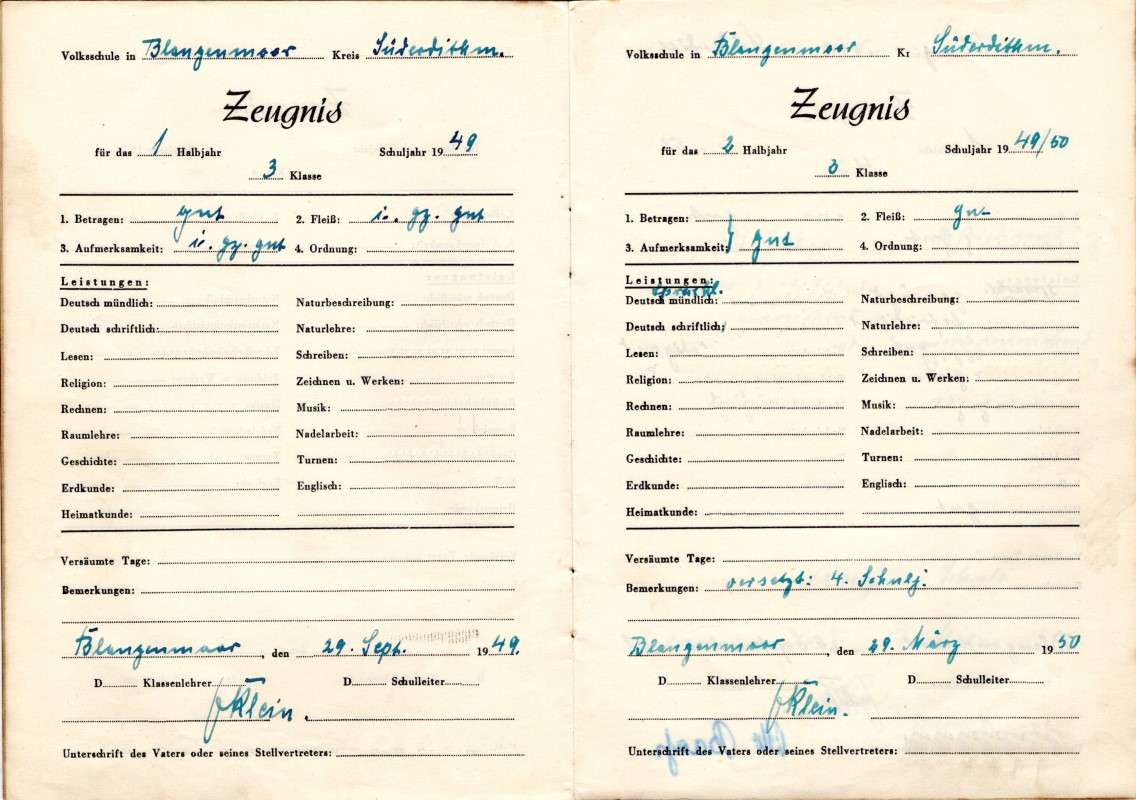 Volksschule in Blangenmoor Kreis Süderdithm.
Zeugnis
für das 1 Halbjahr Schuljahr 1949
3 Klasse
1. Betragen: gut 2. Fleiß: i. gz. gut
3. Aufmerksamkeit: i. gz. gut 4. Ordnung:
Leistungen:
Deutsch mündlich: Naturbeschreibung:
Deutsch schriftlich: Naturlehre:
Lesen: Schreiben:
Religion: Zeichnen u. Werken:
Rechnen: Musik:
Raumlehre: Nadelarbeit:
Geschichte: Turnen:
Erdkunde: Englisch:
Heimatkunde:
Versäumte Tage:
Bemerkungen:
Blangenmoor, den 29. Sept. 1949.
D Klassenlehrer D Schulleiter
Klein.
Unterschrift des Vaters oder seines Stellvertreters:
Volksschule in Blangenmoor Kr Süderdithm.
Zeugnis
für das 2 Halbjahr Schuljahr 1949/50
3 Klasse
1. Betragen: 2. Fleiß: gut
3. Aufmerksamkeit: gut 4. Ordnung:
Leistungen:
Deutsch mündlich:
Naturbeschreibung:
Deutsch schriftlich: Naturlehre:
Lesen: Schreiben:
Religion: Zeichnen u. Werken:
Rechnen: Musik:
Raumlehre: Nadelarbeit:
Geschichte: Turnen:
Erdkunde: Englisch:
Heimatkunde:
Versäumte Tage:
Bemerkungen: versetzt: 4. Schulj.
Blangenmoor, den 29. März 1950
D Klassenlehrer D Schulleiter
Klein.
Unterschrift des Vaters oder seines Stellvertreters: